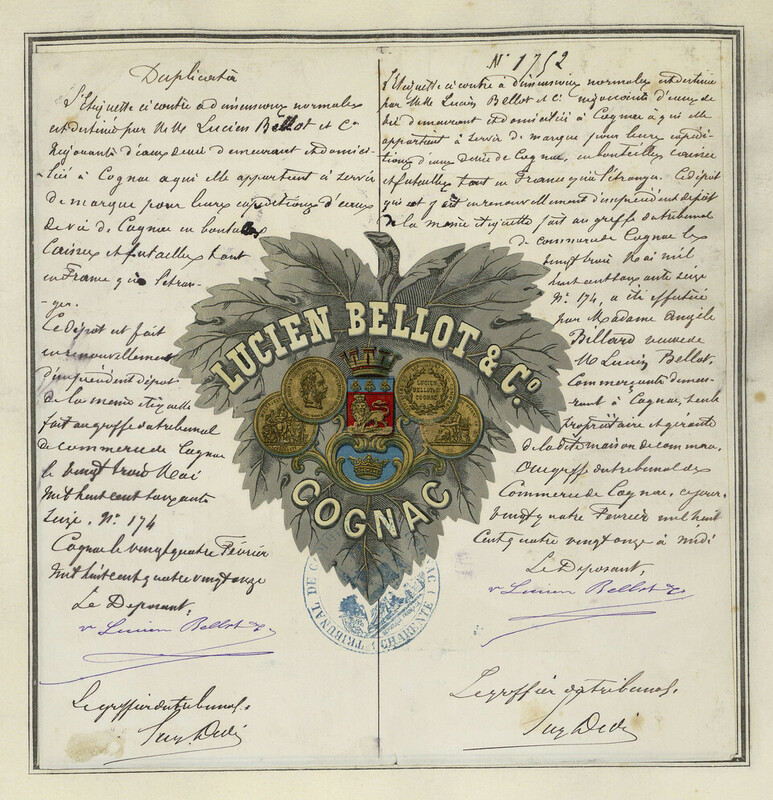 Duplicata
L'Etiquette ci contre a dimensions normales
est destinée par M.M. Lucien Bellot et Co
Négociants d'eaux devie demeurant et domici-
-liés à Cognac a qui elle appartient à servir
de marque pour leurs expéditions d'eaux
devie de Cognac en bouteilles
Caisses et futailles tant
en France qu'à l'étran-
-ger.
Ce dépot est fait
en renouvellement
d'un précédent dépot
de la même étiquette
fait au greffe du tribunal
de commerce de Cognac
le vingt trois Mai
Mil huit cent soixante
Seize, No 174
Cognac le vingt quatre Février
Mil huit cent quatre vingt onze
Le Déposant,
v Lucien Bellot & Co
Le greffier du tribunal,
No 1752
L'Etiquette ci contre à dimensions normales est destinée
par M.M. Lucien Bellot et Co négociants d'eaux de
vie demeurant et domiciliés à Cognac à qui elle
appartient à servir de marque pour leurs expédi-
tions d'eaux devie de Cognac, en bouteilles caisses
et futailles tant en France qu'à l'étranger. Ce dépot
qui est fait en renouvellement d'un précédent dépôt
de la même étiquette fait au greffe du tribunal
de commerce de Cognac le
vingt trois Mai mil
huit cent soixante seize
No 174, a été effectué
par Madame Angèle
Billard veuve de
M. Lucien Bellot,
Commerçante demeu-
rant à Cognac, seule
propriétaire et gérante
de la dite maison de commerce.
Au greffe du tribunal de
Commerce de Cognac, ce jour
vingt quatre Février mil huit
Cent quatre vingt onze à midi
Le Déposant,
v Lucien Bellot & Co
Le greffier du tribunal,
LUCIEN BELLOT & Co
LUCIEN
BELLOT & Co
COGNAC
COGNAC
TRIBUNAL DE
(CHARENTE)